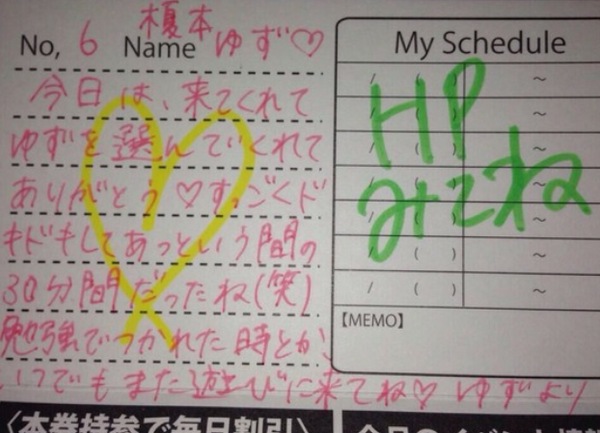 No, 6 Name 榎本ゆず♡
今日は、来てくれて
ゆずを選んでくれて
ありがとう♡すっごくド
キドキしてあっという間の
30分間だったね(笑)
勉強でつかれた時とか、
いつでもまた遊びに来てね♡ ゆずより
My Schedule
/ ( ) ~
/ ( ) ~
/ ( ) ~
/ ( ) ~
/ ( ) ~
/ ( ) ~
/ ( ) ~
HP
みてね
【MEMO】
〈本券持参で毎日割引〉